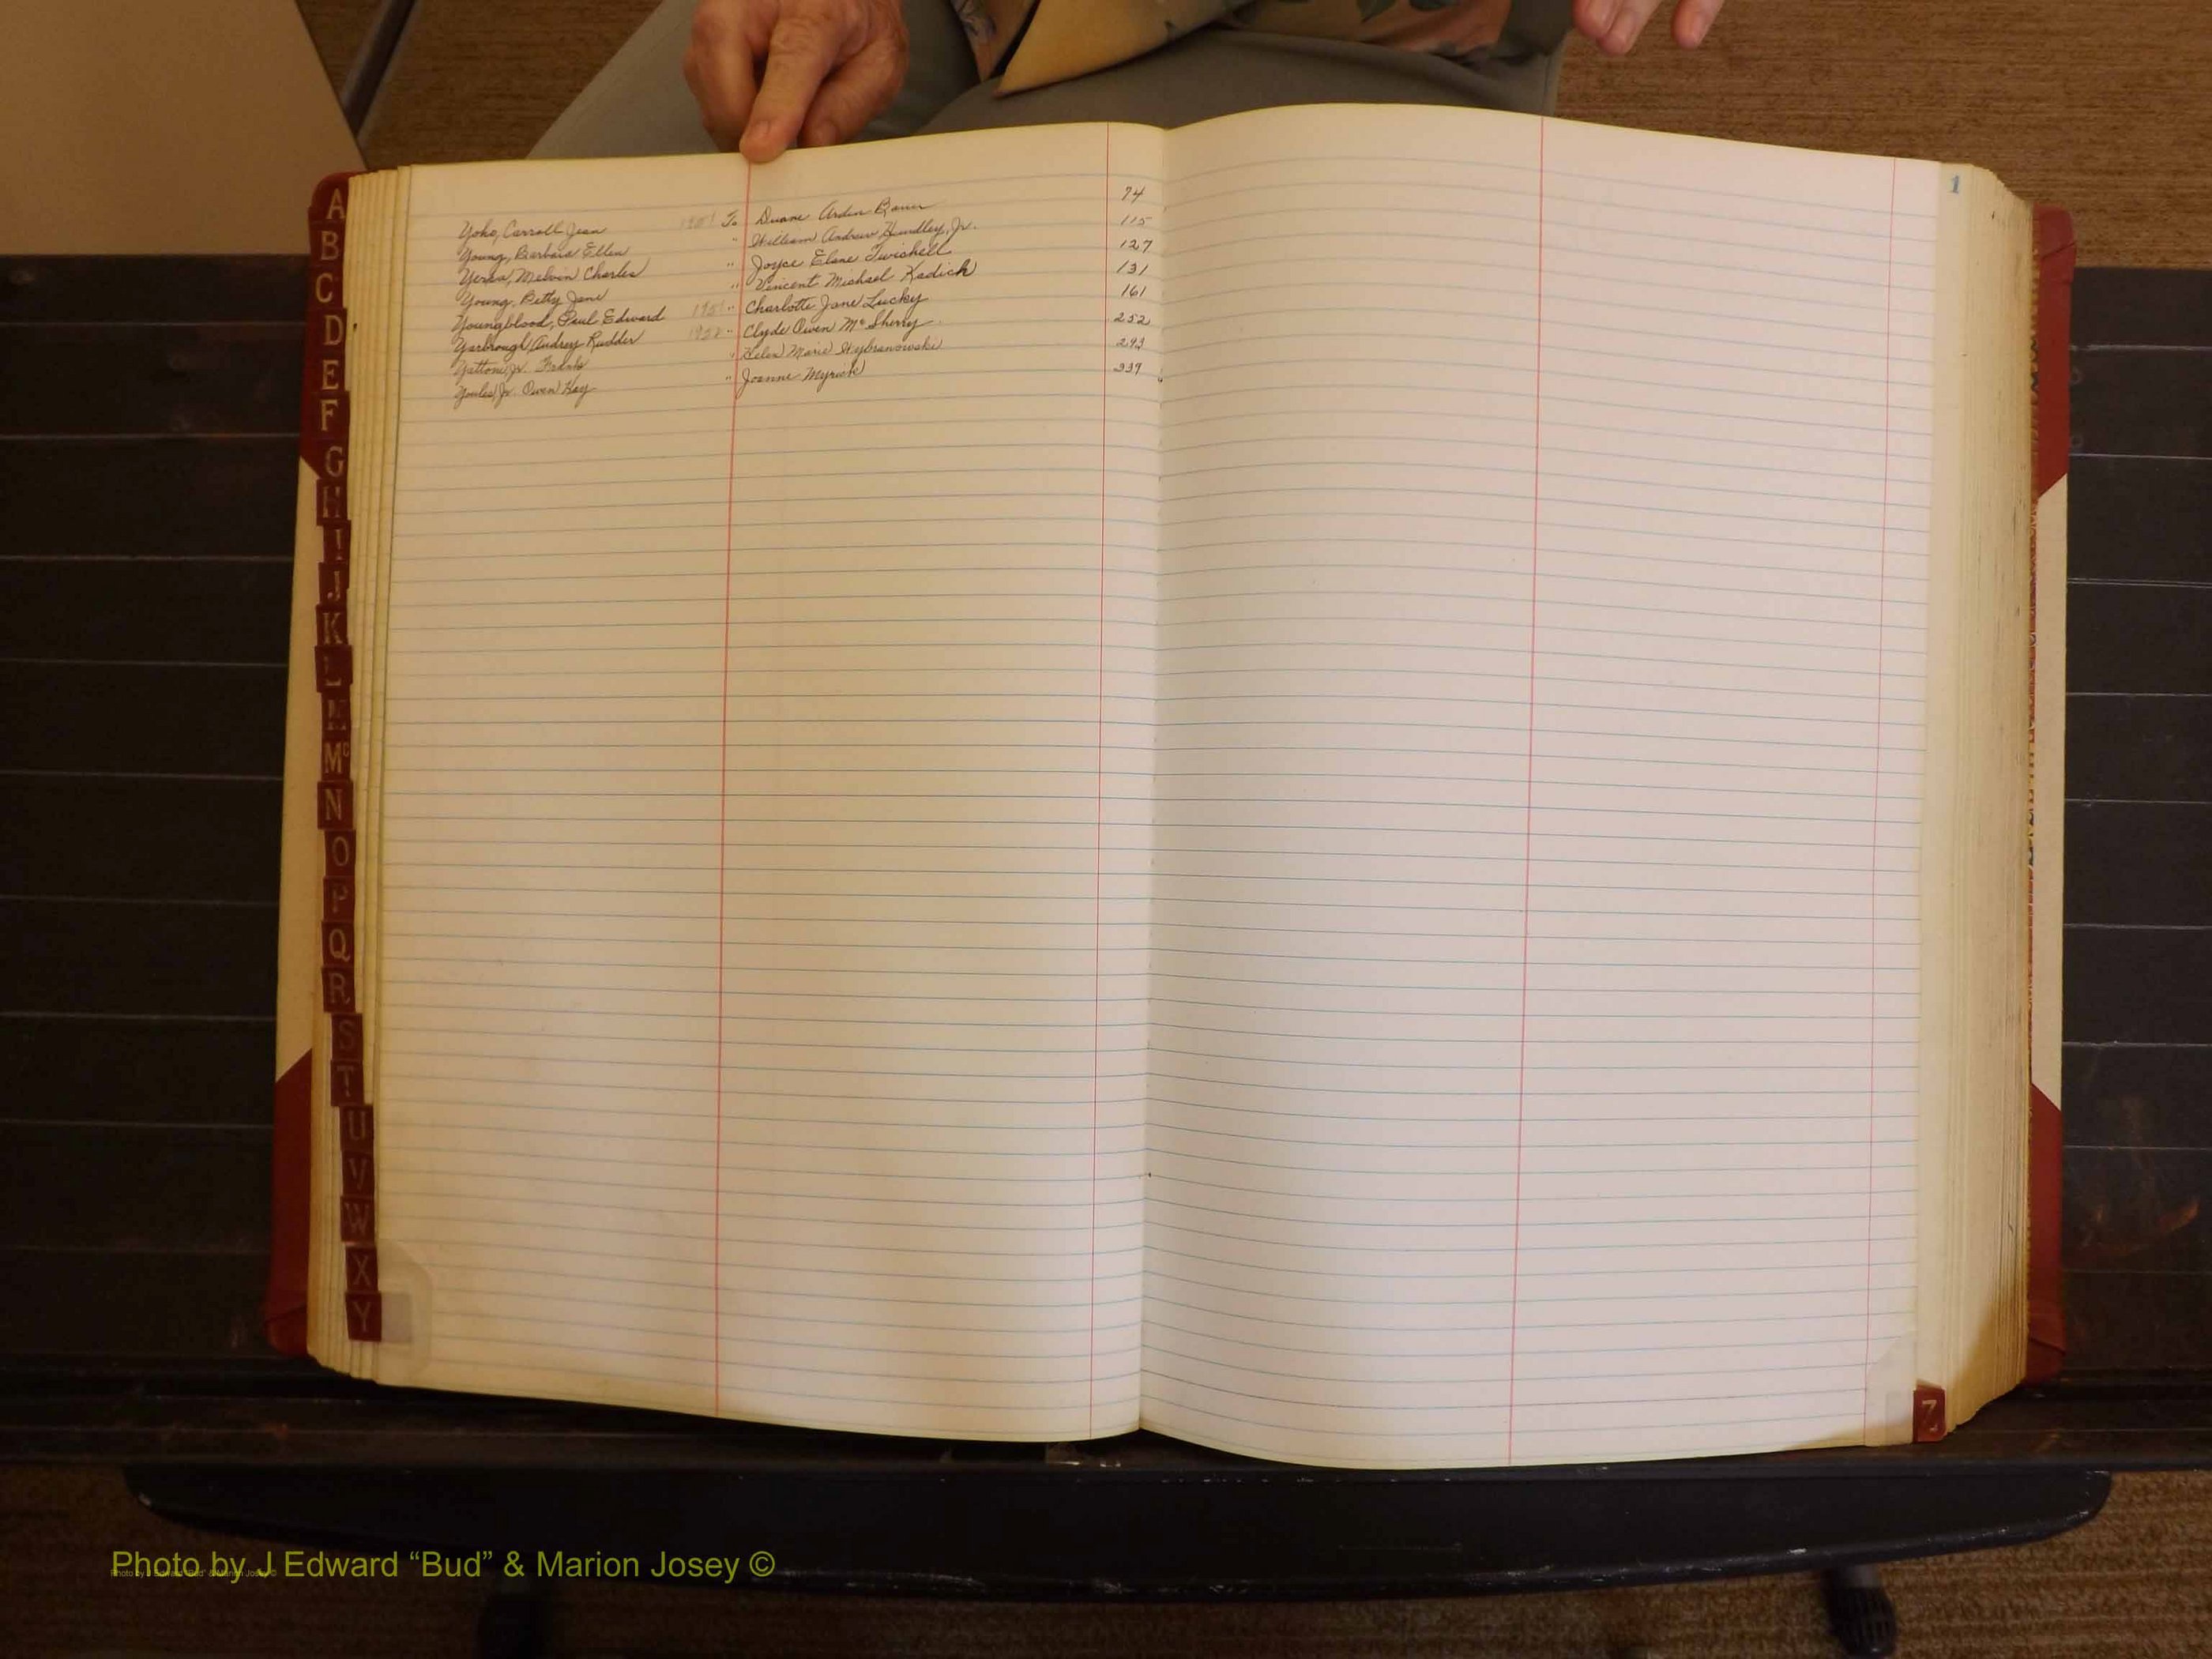 Yoho, Carroll Jean 1951 To Duane Arden Bauer 74
Young, Barbara Ellen " William Andrew Hundley, Jr. 115
Yerka, Melvin Charles " Joyce Elane Twichell 127
Young, Betty Jane " Vincent Michael Kadich 131
Youngblood, Paul Edward 1951 " Charlotte Jane Lucky 161
Yarbrough, Audrey Rudder 1952 " Clyde Owen McSherry 252
Jr. Frank " Helen Marie Wybranowski 293
Jr. Owen Kay " Joanne Myrick 339
1
A
B
C
D
E
F
G
H
I
J
K
L
M
Mc
N
O
P
Q
R
S
T
U
V
W
X
Y
Z
Photo by J Edward “Bud” & Marion Josey ©
Photo by J Edward “Bud” & Marion Josey ©